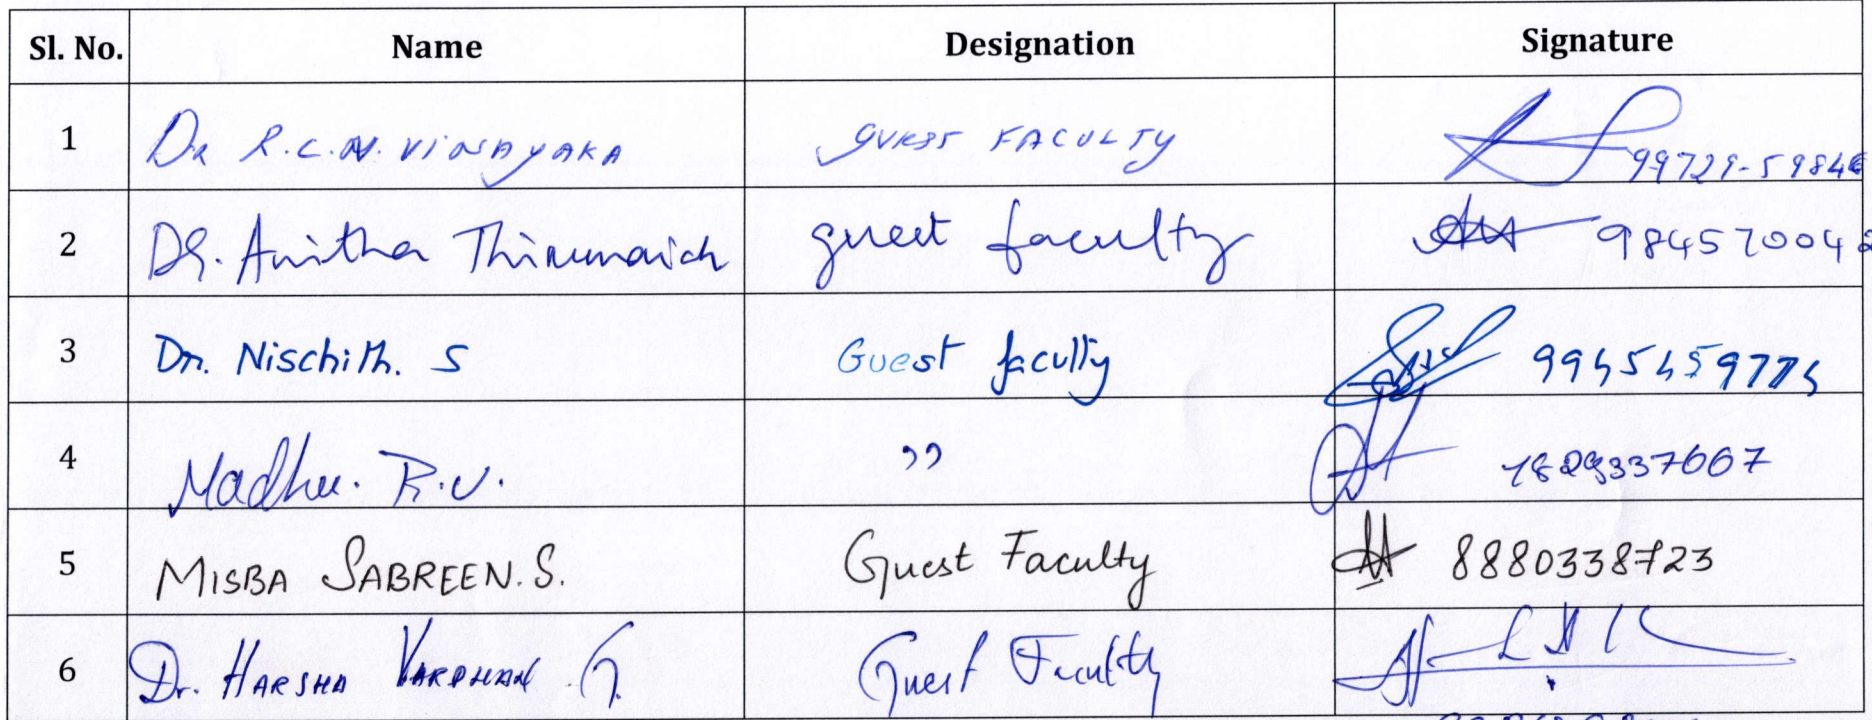 Sl. No. Name Designation Signature
1 Dr R.C.N. VINAYAKA GUEST FACULTY 99729-5984
2 Dr. Anitha Thirumaiah guest faculty 984570042
3 Dr. Nischith. S Guest faculty
4 Madhu. R.V. ,,
5 MISBA SABREEN. S. Guest Faculty 8880338723
6 Dr. HARSHA VARDHAN G. Guest Faculty